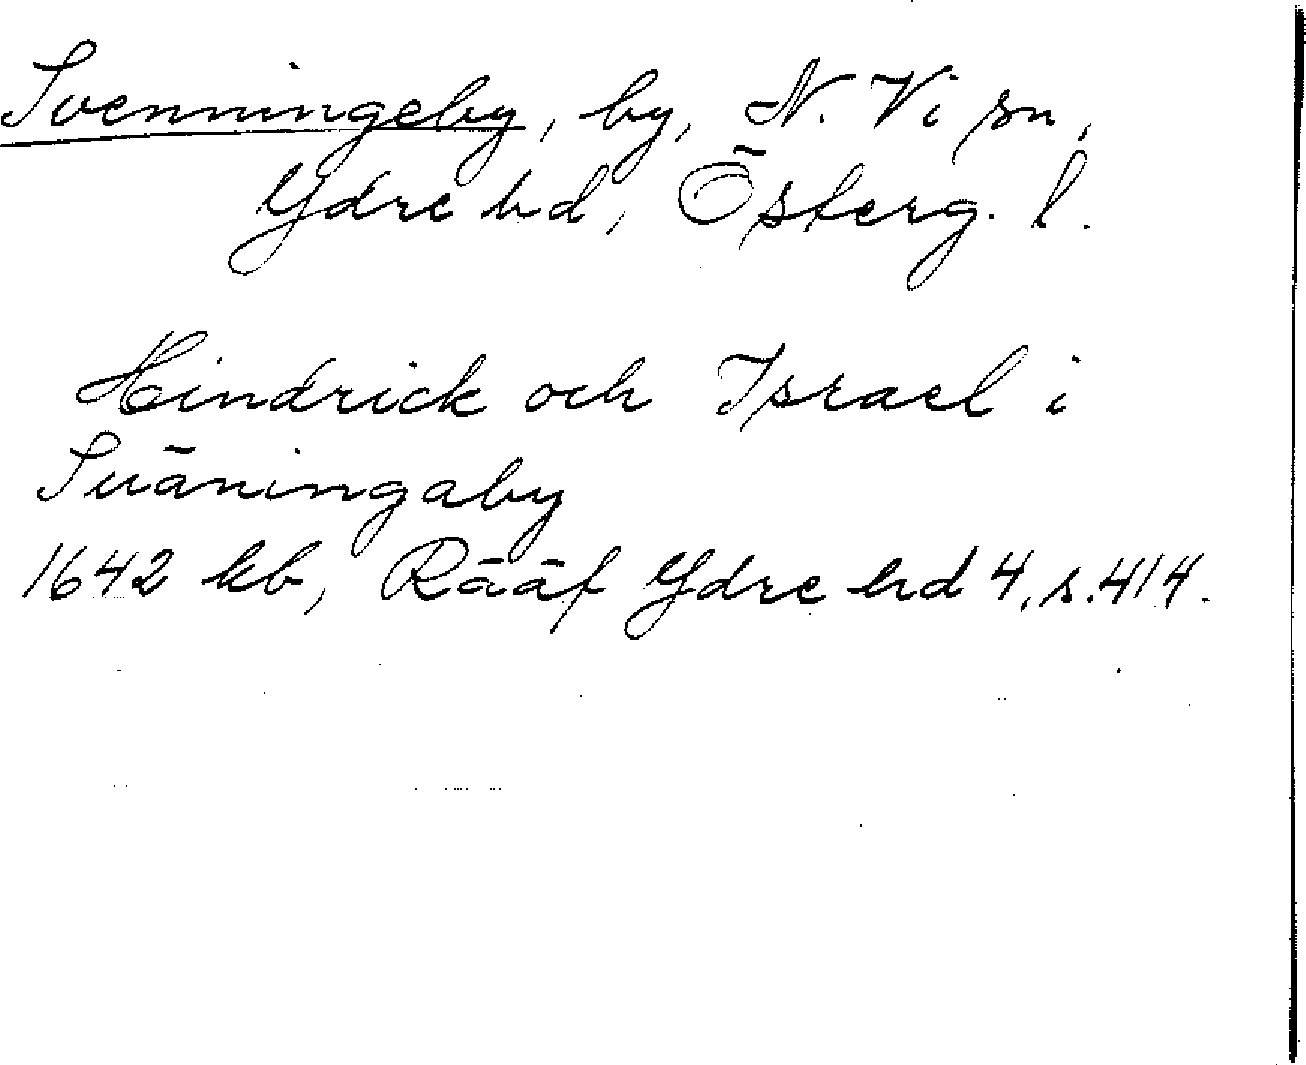 Svenningeby, by, N. Vi sn,
Ydre hd, Österg. l.
Hindrick och Israel i
Suäningaby
1642 kb, Rääf Ydre hd 4, s. 414.